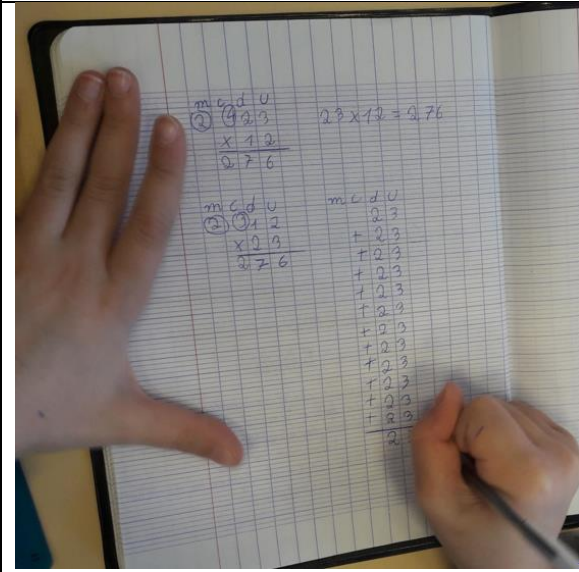 m c d u
② ④ 2 3
x 1 2
2 7 6
23 x 12 = 276
m c d u
② ③ 1 2
x 2 3
2 7 6
m c d u
2 3
+ 2 3
+ 2 3
+ 2 3
+ 2 3
+ 2 3
+ 2 3
+ 2 3
+ 2 3
+ 2 3
+ 2 3
+ 2 3
2